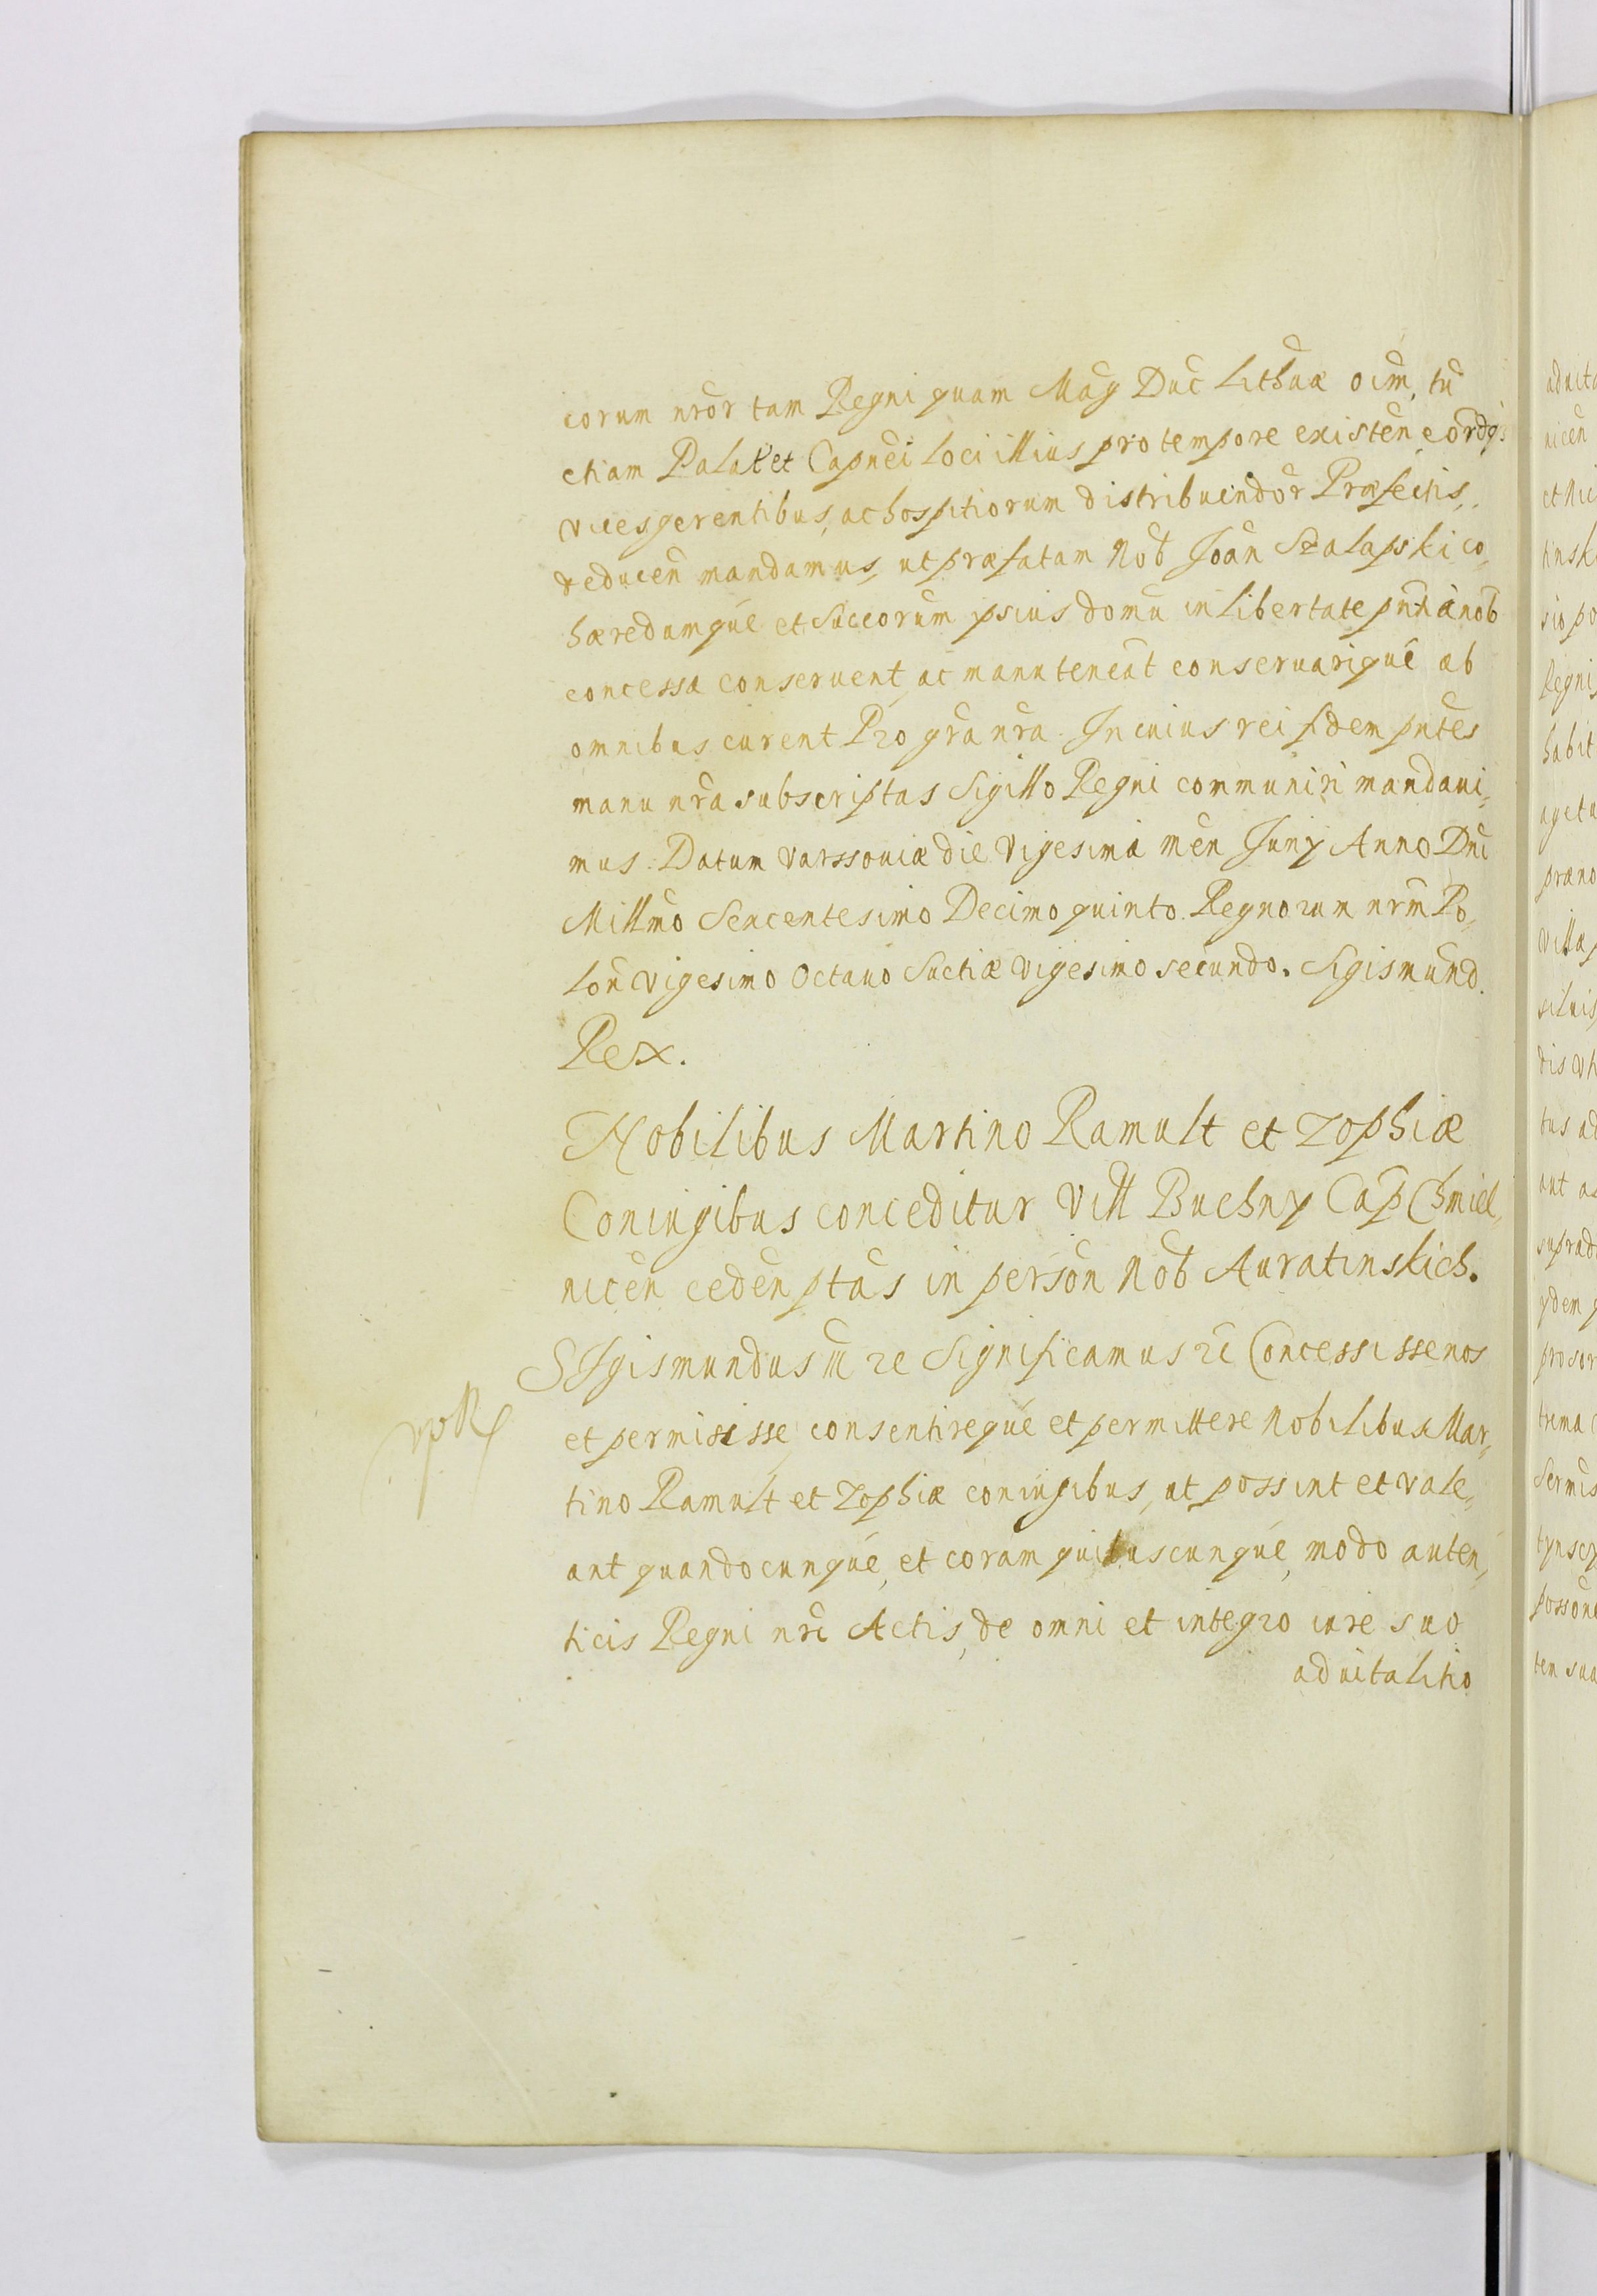 corum nror tam Regni quam Mag Duc Lithuæ oim, tu
etiam Palat et Capnei loci illius pro tempore existen, eordq;
vices gerentibus, ac hospitiorum distribuendor Præfectis,
educen mandamus, ut præfatam Nob Joan Szalapski co,
hæredumque et Succorum ipsius domu in libertate pnti a nob
concessa conseruent ac manuteneat conseruarique ab
omnibus curent Pro gra nra. In cuius rei fidem pntes
manu nra subscriptas Sigillo Regni communiri mandaui,
mus. Datum Varssouiæ die Vigesima men Juny Anno Dni
Millmo Sexcentesimo Decimo quinto. Regnorum nrm Po,
lon Vigesimo Octauo Suetiæ Vigesimo secundo. Sigismund
Rex.
Nobilibus Martino Ramult et Zophiæ
Coniugibus conceditur Vill Buchny Cap Chmiel,
nicen ceden ptas in person Nob Auratinskich.
SIgismundus III re Significamus re Concessisse nos
et permisisse consentireque et permittere Nobilibus Mar,
tino Ramult et Zophiæ coniugibus, ut possint et vale,
ant quandocunque, et coram quibuscunque, modo auten,
ticis Regni nri Actis, de omni et integro iure suo
aduitalitio